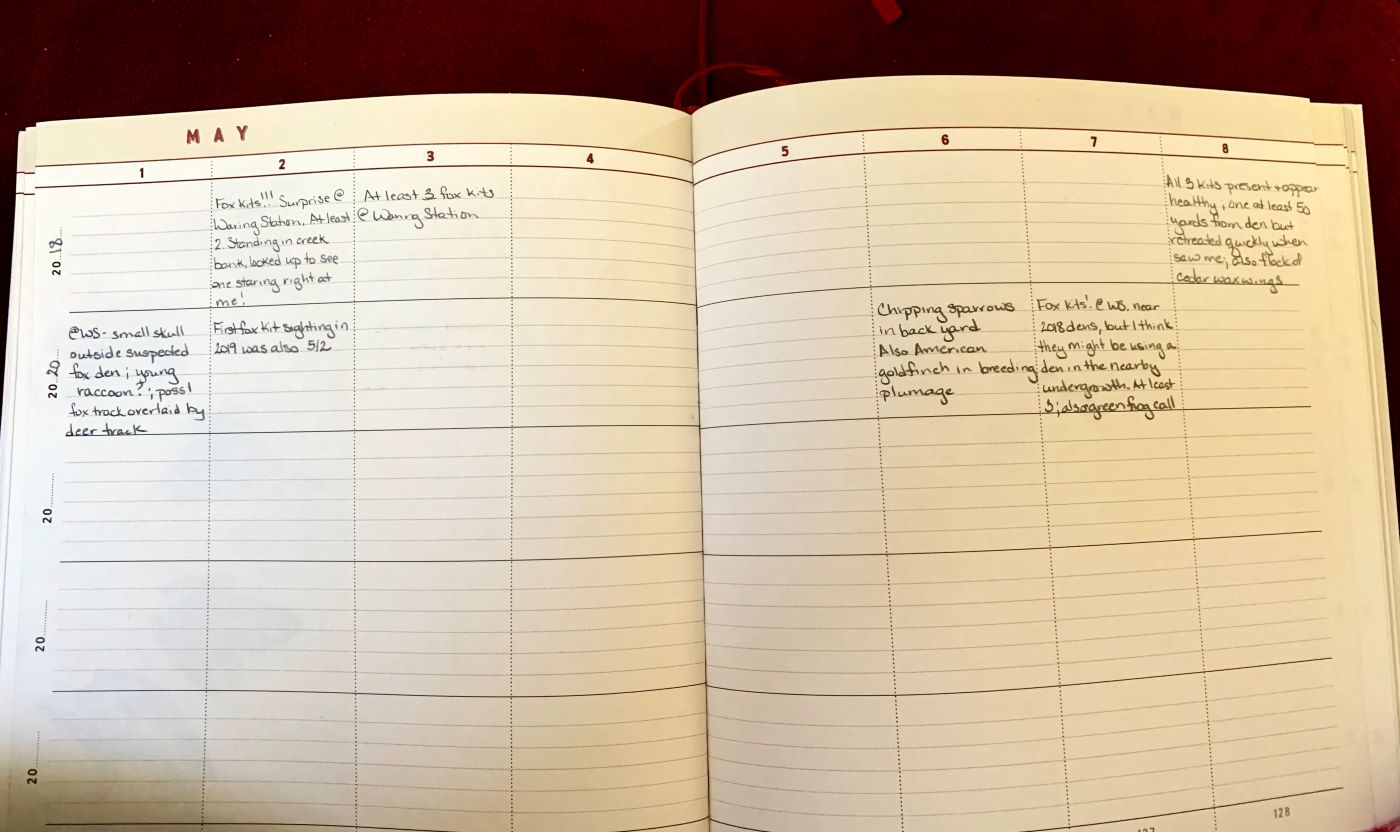 MAY
1
2
3
4
5
6
7
8
2018
Fox Kits!!! Surprise @
Waring Station. At least
2. Standing in creek
bank, looked up to see
one staring right at
me!
At least 3 fox kits
@ Waring Station
All 3 kits present + appear
healthy, one at least 50
yards from den but
retreated quickly when
saw me; also flock of
cedar waxwings
2020
@WS- small skull
outside suspected
fox den; young
raccoon?; poss1
fox track overlaid by
deer track
First fox kit sighting in
2019 was also 5/2
Chipping sparrows
in back yard
Also American
goldfinch in breeding
plumage
Fox kits! @ WS. near
2018 dens, but I think
they might be using a
den in the nearby
undergrowth. At least
3; also green frog call
20
20
20
127
128